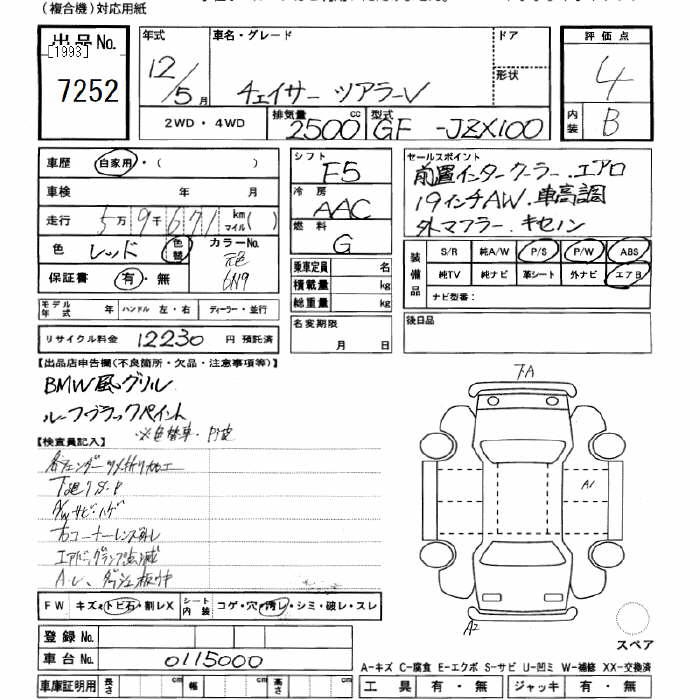 (複合機)対応用紙
出品No.
[1993]
7252
年式 12/5月
車名・グレード
チェイサー ツアラーV
ドア
形状
評価点
4
内装 B
2WD・4WD
排気量 2500cc
型式 GF-JZX100
車歴 自家用・( )
車検 年 月
走行 5万9千671 km マイル( )
色 レッド 色替
カラーNo. 元色 6N9
保証書 有・無
モデル年式 年 ハンドル 左・右 ディーラー・並行
リサイクル料金 12230 円 預託済
シフト F5
冷房 AAC
燃料 G
乗車定員 名
積載量 kg
総重量 kg
名変期限
月 日
セールスポイント
前置インタークーラー.エアロ
19インチAW.車高調
外マフラー.キセノン
装備品
S/R 純A/W P/S P/W ABS
純TV 純ナビ 革シート 外ナビ エアB
ナビ型番:
後日品
【出品店申告欄(不良箇所・欠品・注意事項等)】
BMW風グリル
ルーフブラックペイント
※色替車・
【検査員記入】
各フェンダーツメ折り加工
下廻りサ・
A/Wサビ・ハゲ
右コーナーレンズ
エアバッグランプ
A-レ、ダッシュ板
FW キズ・トビ石・割レX
シート内装 コゲ・穴・汚レ・シミ・破レ・スレ
登録No.
車台No. 0115000
車庫証明用 長さ cm 幅 cm 高さ cm
下A
A1
A2
スペア
A-キズ C-腐食 E-エクボ S-サビ U-凹ミ W-補修 XX-交換済
工具 有・無 ジャッキ 有・無